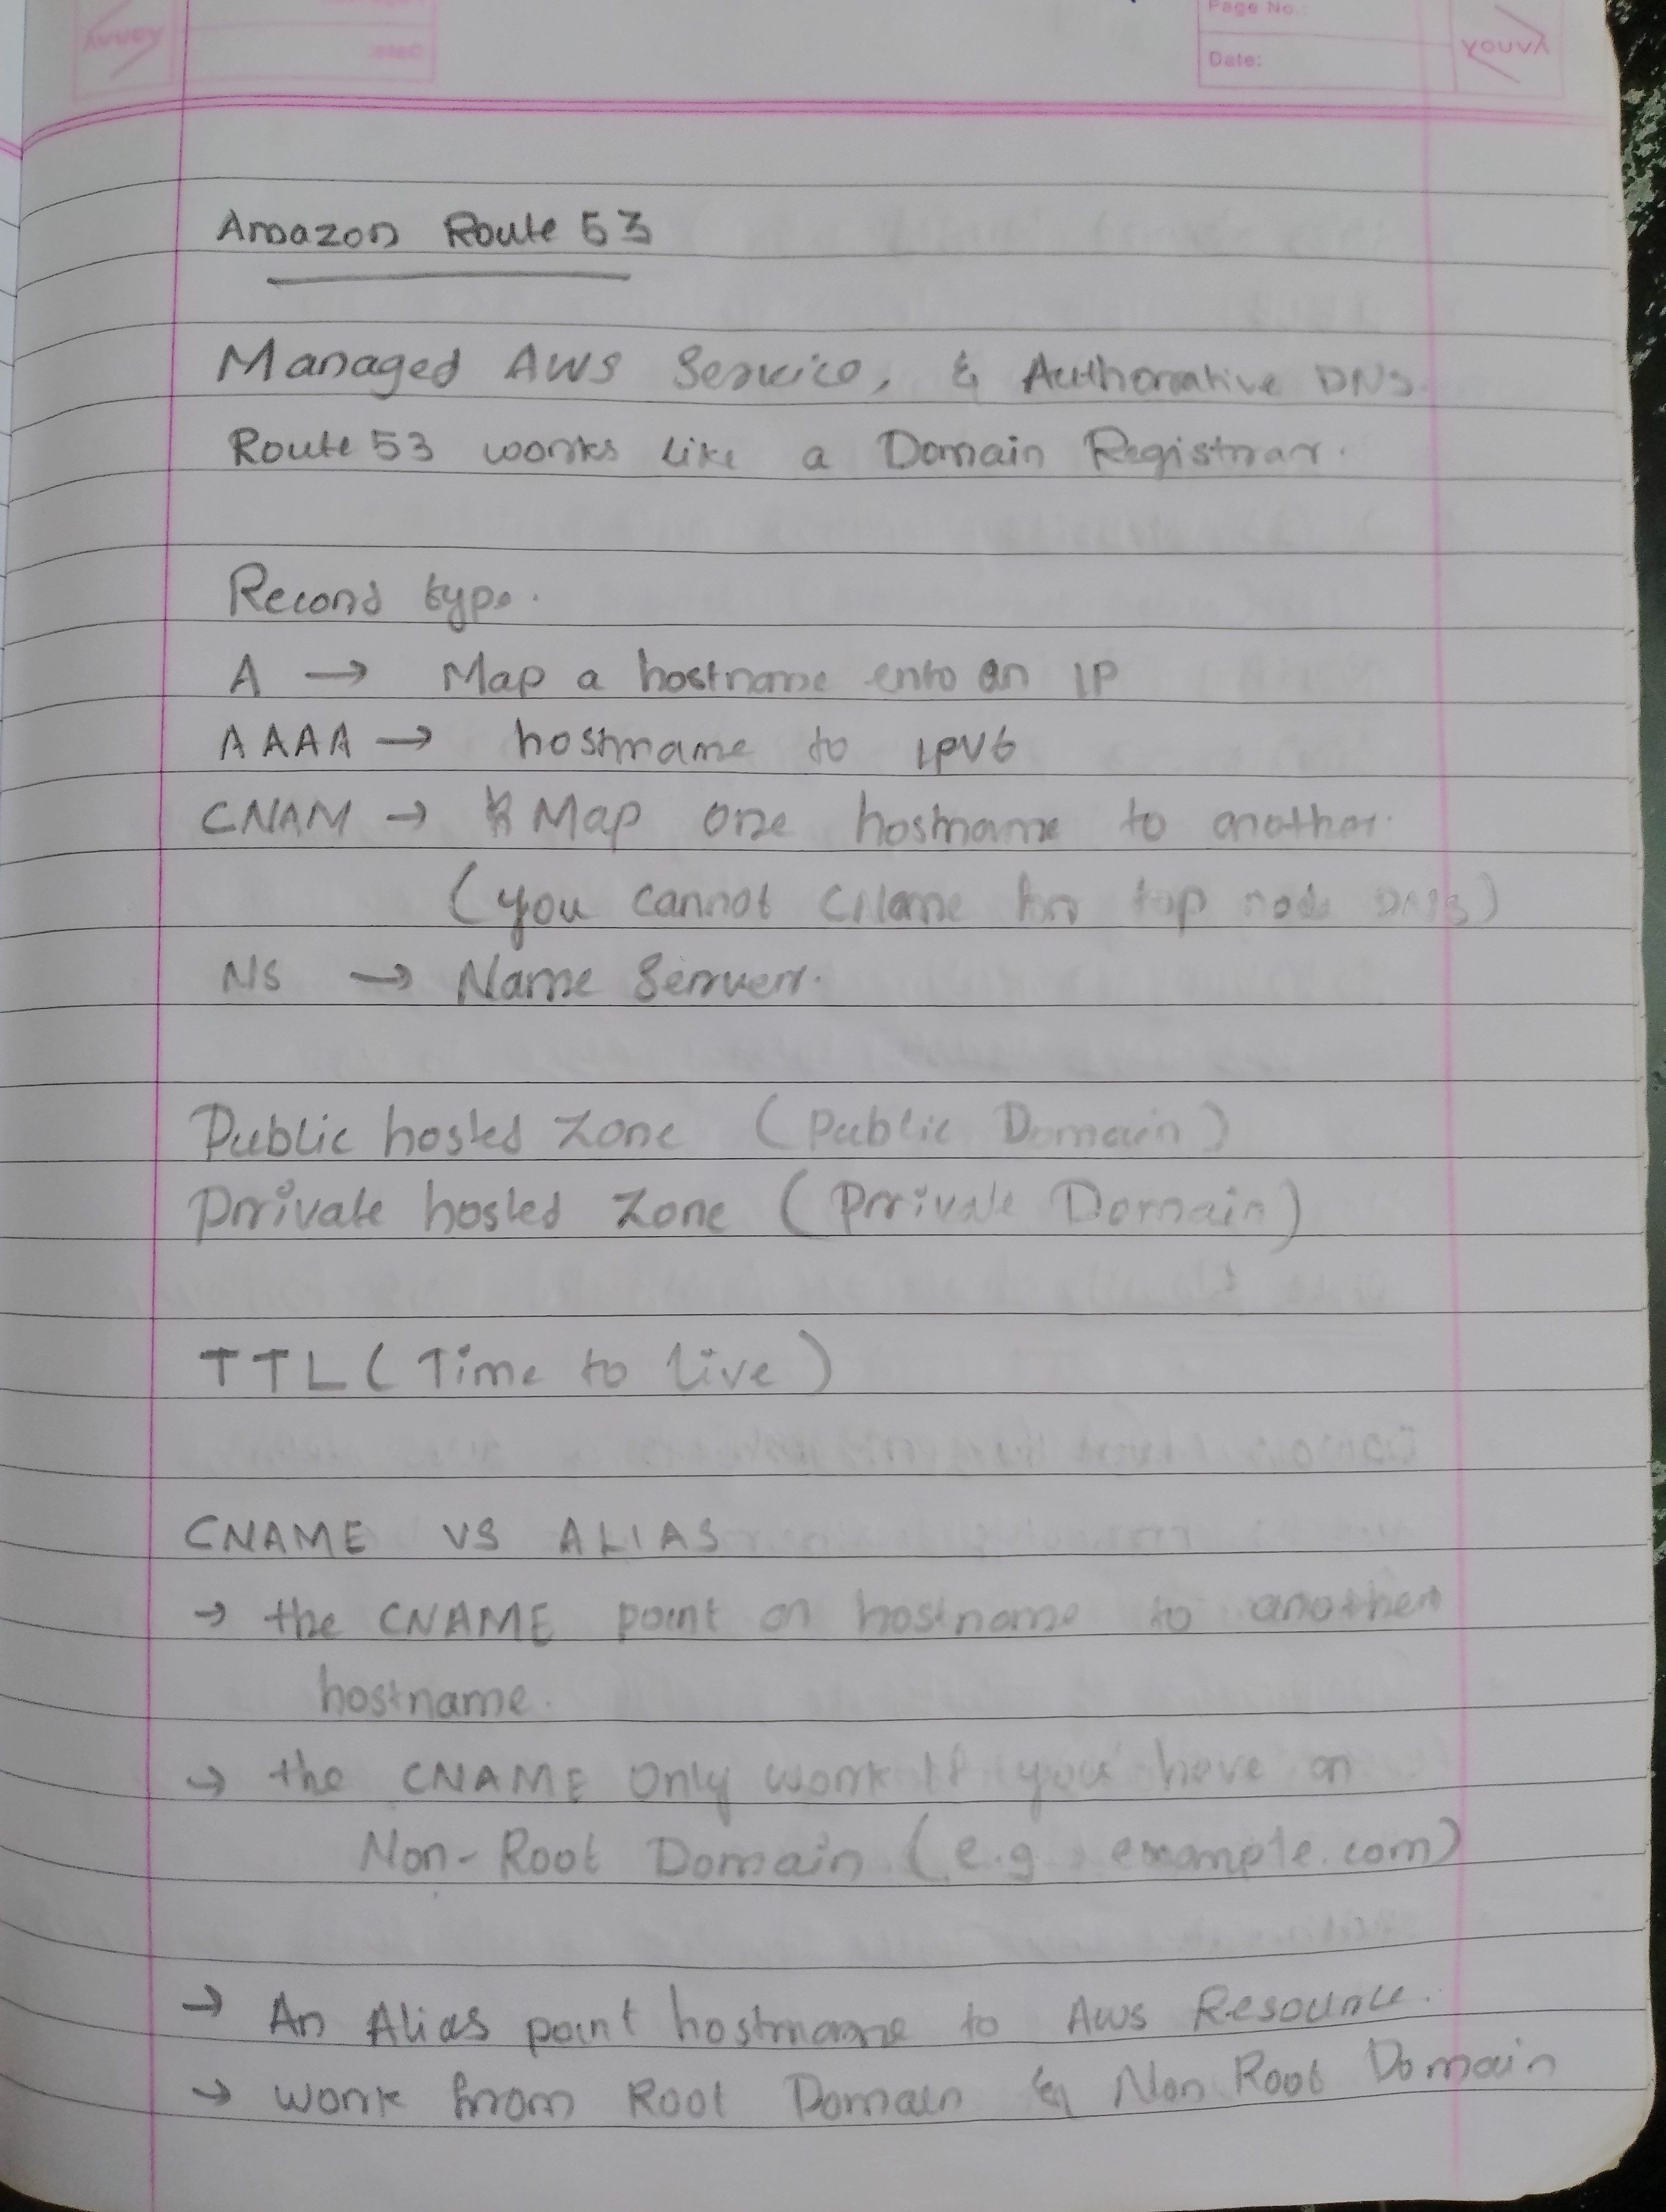 Page No.:
Date:
YOUVA
Amazon Route 53
Managed AWS Service, & Authorative DNS.
Route 53 works like a Domain Registrar.
Record type.
A → Map a hostname ento an IP
AAAA → hostname to IPV6
CNAM → Map one hostname to another.
(you cannot CName for top node DNS)
NS → Name Server.
Public hosted Zone (Public Domain)
Private hosted Zone (Private Domain)
TTL (Time to live)
CNAME VS ALIAS
→ the CNAME point an hostname to another
hostname.
→ the CNAME Only work If you have an
Non-Root Domain (e.g. example.com)
→ An Alias point hostname to Aws Resource.
→ work from Root Domain & Non Root Domain